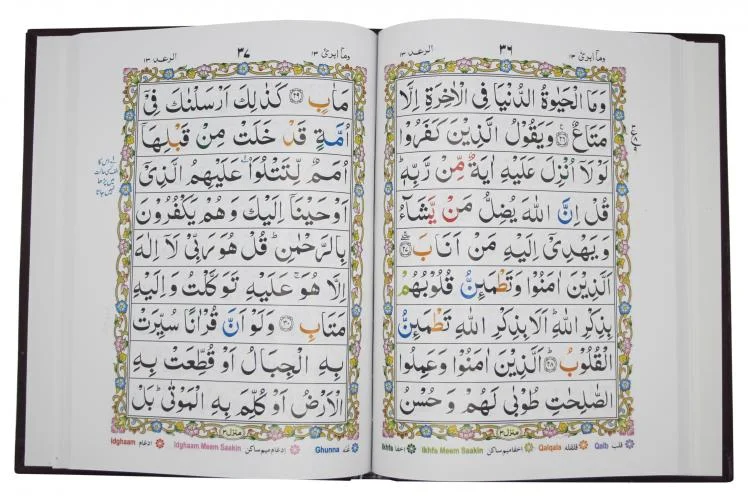 وما ابرئ ١٣
٣٦
الرعد ١٣
وَمَا الْحَيٰوةُ الدُّنْيَا فِي الْاٰخِرَةِ اِلَّا
مَتَاعٌ ۝٢٦ وَيَقُوْلُ الَّذِيْنَ كَفَرُوْا
لَوْلَاۤ اُنْزِلَ عَلَيْهِ اٰيَةٌ مِّنْ رَّبِّهٖ ؕ
قُلْ اِنَّ اللّٰهَ يُضِلُّ مَنْ يَّشَآءُ
وَيَهْدِيْۤ اِلَيْهِ مَنْ اَنَابَ ۝٢٧
اَلَّذِيْنَ اٰمَنُوْا وَتَطْمَئِنُّ قُلُوْبُهُمْ
بِذِكْرِ اللّٰهِ ؕ اَلَا بِذِكْرِ اللّٰهِ تَطْمَئِنُّ
الْقُلُوْبُ ۝٢٨ ؕ اَلَّذِيْنَ اٰمَنُوْا وَعَمِلُوا
الصّٰلِحٰتِ طُوْبٰى لَهُمْ وَحُسْنُ
منزل ٣
قلب Qalb قلقله Qalqala اخفا میم ساکن Ikhfa Meem Saakin اخفا Ikhfa
وما ابرئ ١٣
٣٧
الرعد ١٣
مَاٰبٍ ۝٢٩ كَذٰلِكَ اَرْسَلْنٰكَ فِيْۤ
اُمَّةٍ قَدْ خَلَتْ مِنْ قَبْلِهَاۤ
اُمَمٌ لِّتَتْلُوَا۟ عَلَيْهِمُ الَّذِيْۤ
اَوْحَيْنَاۤ اِلَيْكَ وَهُمْ يَكْفُرُوْنَ
بِالرَّحْمٰنِ ؕ قُلْ هُوَ رَبِّيْ لَاۤ اِلٰهَ
اِلَّا هُوَ ۚ عَلَيْهِ تَوَكَّلْتُ وَاِلَيْهِ
مَتَابِ ۝٣٠ وَلَوْ اَنَّ قُرْاٰنًا سُيِّرَتْ
بِهِ الْجِبَالُ اَوْ قُطِّعَتْ بِهِ
الْاَرْضُ اَوْ كُلِّمَ بِهِ الْمَوْتٰى ؕ بَلْ
منزل ٣
غنه Ghunna ادغام میم ساکن Idghaam Meem Saakin ادغام Idghaam